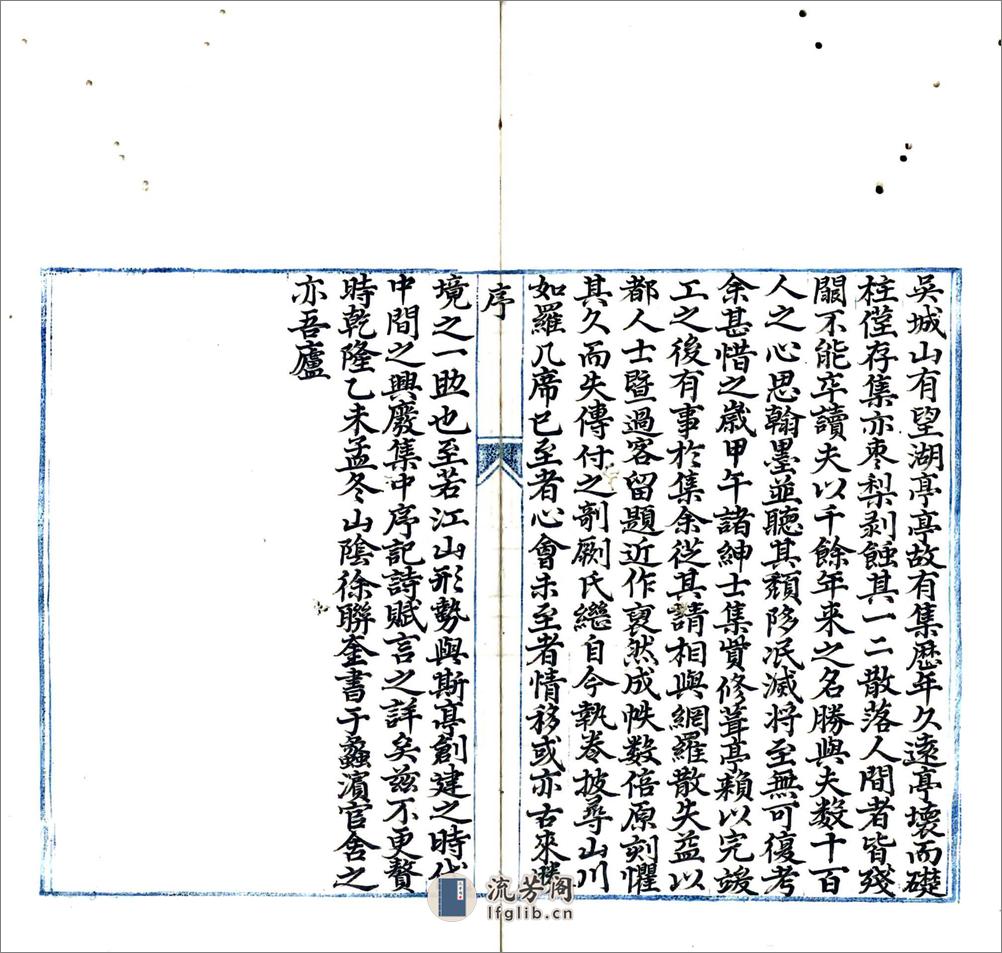 吳城山有望湖亭亭故有集歷年久遠亭壞而礎
柱僅存集亦棗梨剥蝕其一二散落人間者皆殘
闕不能卒讀夫以千餘年来之名勝與夫数十百
人之心思翰墨並聽其頽陊泯滅将至無可復考
余甚惜之歲甲午諸紳士集貲修葺亭頼以完竣
工之後有事於集余從其請相與網羅散失益以
都人士暨過客留題近作裒然成帙数倍原刻懼
其久而失傳付之剞劂氏繼自今執卷披尋山川
如羅几席已至者心會未至者情移或亦古來勝
序
境之一助也至若江山形勢與斯亭創建之時代
中間之興廢集中序記詩賦言之詳矣兹不更贅
時乾隆乙未孟冬山陰徐聯奎書于蠡濱官舍之
亦吾廬
流芳阁
lfglib.cn